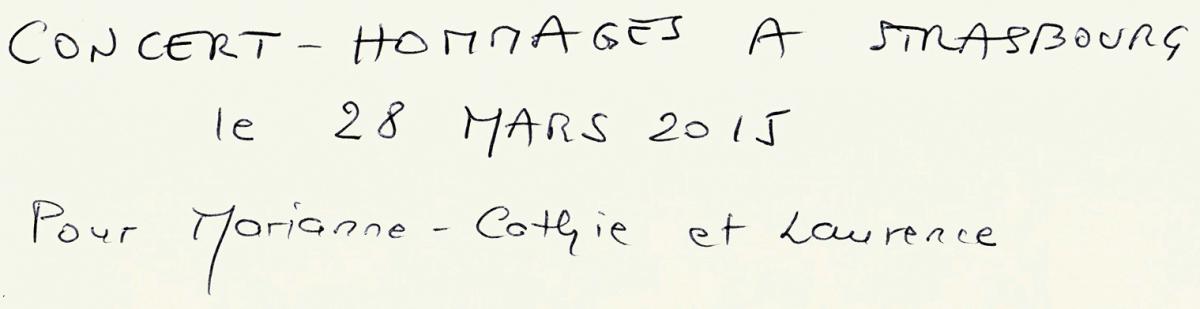 CONCERT - HOMMAGES A STRASBOURG
le 28 MARS 2015
Pour Marianne - Cathie et Laurence